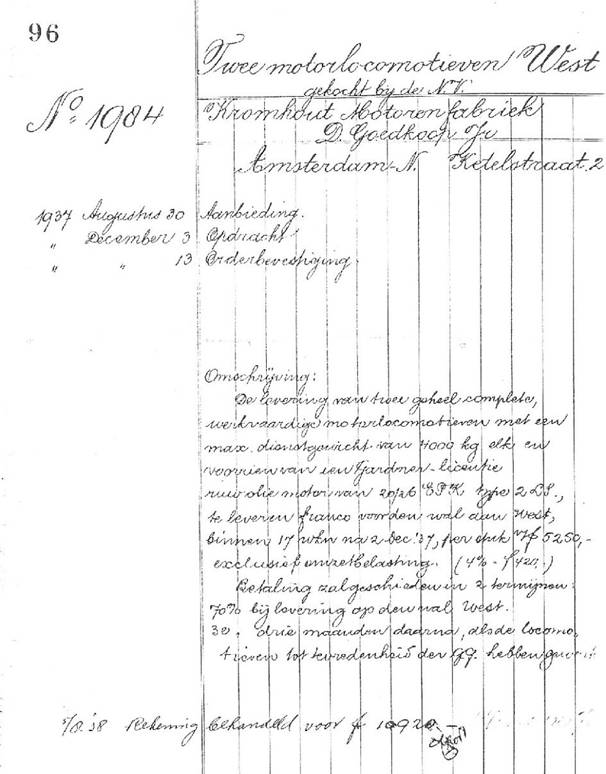 96
Twee motorlocomotieven West
gekocht by de N.V.
No. 1984
Kromhout Motorenfabriek
D. Goedkoop Jr
Amsterdam-N. Ketelstraat 2
1937 Augustus 30 Aanbieding.
" December 3 Opdracht
" " 13 Orderbevestiging.
Omschrijving:
De levering van twee geheel complete,
werkvaardige motorlocomotieven met een
max. dienstgewicht van 4000 kg elk en
voorzien van een Gardner-licentie
ruwoliemotor van 20/26 EPK type 2 LS.,
te leveren franco voor den wal aan West,
binnen 17 wkn na 2 Dec '37, per stuk f 5250,-
exclusief omzetbelasting. (4% - f 420,-)
Betaling zal geschieden in 2 termijnen:
70% bij levering op den wal West.
30 " drie maanden daarna, als de locomo,
tieven tot tevredenheid der GG. hebben
'38 Rekening behandeld voor f 10920.-